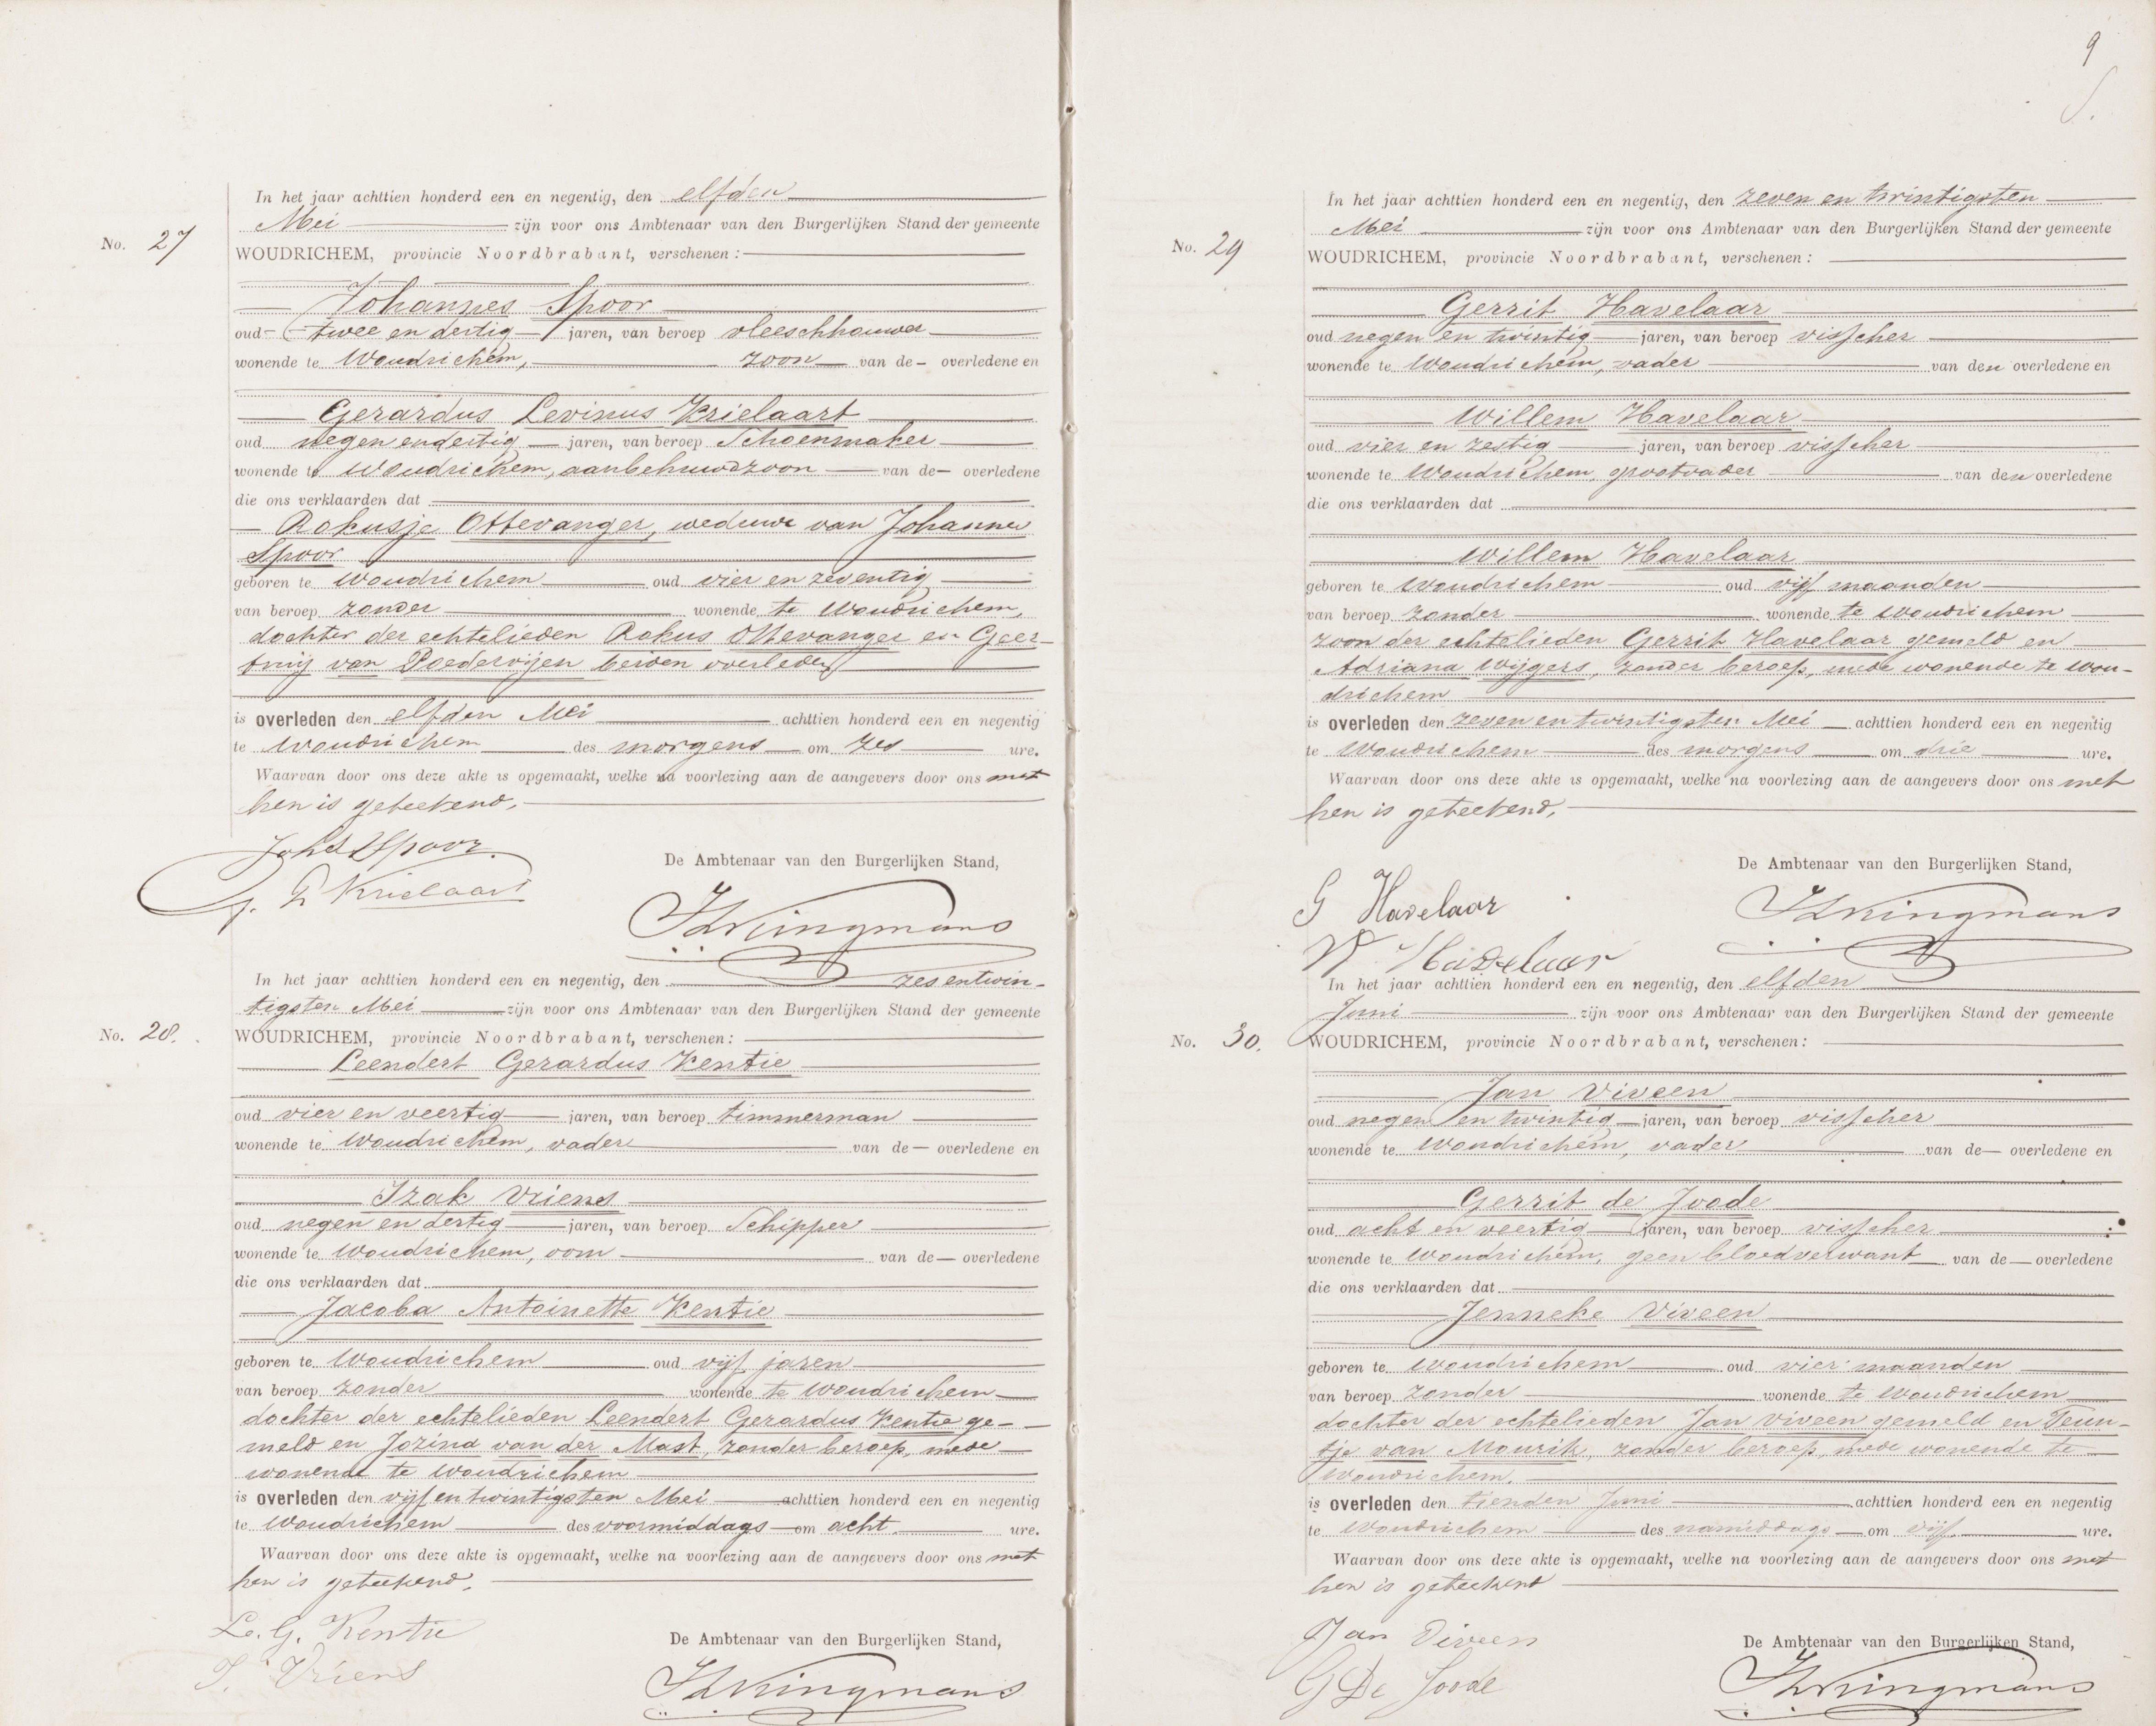 In het jaar achttien honderd een en negentig, den elfden
Mei zijn voor ons Ambtenaar van den Burgerlijken Stand der gemeente
No. 27
WOUDRICHEM, provincie Noordbrabant, verschenen:
Johannes Spoor
oud twee en dertig jaren, van beroep vleeschhouwer
wonende te Woudrichem, zoon van de overledene en
Gerardus Levinus Krielaart
oud negen en dertig jaren, van beroep Schoenmaker
wonende te Woudrichem, aanbehuwdzoon van de overledene
die ons verklaarden dat
Rokusje Ottevanger, weduwe van Johannes
Spoor
geboren te Woudrichem oud vier en zeventig
van beroep zonder wonende te Woudrichem,
dochter der echtelieden Rokus Ottevanger en Geer-
truij van Poederoijen beiden overleden
is overleden den elfden Mei achttien honderd een en negentig
te Woudrichem des morgens om zes ure.
Waarvan door ons deze akte is opgemaakt, welke na voorlezing aan de aangevers door ons met
hen is geteekend.
Johs Spoor.
G. L Krielaart
De Ambtenaar van den Burgerlijken Stand,
In het jaar achttien honderd een en negentig, den zes entwin-
tigsten Mei zijn voor ons Ambtenaar van den Burgerlijken Stand der gemeente
No. 28.
WOUDRICHEM, provincie Noordbrabant, verschenen:
Leendert Gerardus Kentie
oud vier en veertig jaren, van beroep timmerman
wonende te Woudrichem, vader van de overledene en
Izak Vriens
oud negen en dertig jaren, van beroep Schipper
wonende te Woudrichem, oom van de overledene
die ons verklaarden dat
Jacoba Antoinette Kentie
geboren te Woudrichem oud vijf jaren
van beroep zonder wonende te Woudrichem
dochter der echtelieden Leendert Gerardus Kentie ge-
meld en Jozina van der Mast, zonder beroep, mede
wonende te Woudrichem
is overleden den vijf en twintigsten Mei achttien honderd een en negentig
te Woudrichem des voormiddags om acht ure.
Waarvan door ons deze akte is opgemaakt, welke na voorlezing aan de aangevers door ons met
hen is geteekend.
L. G. Kentie
I. Vriens
De Ambtenaar van den Burgerlijken Stand,
9
In het jaar achttien honderd een en negentig, den zeven en twintigsten
Mei zijn voor ons Ambtenaar van den Burgerlijken Stand der gemeente
No. 29
WOUDRICHEM, provincie Noordbrabant, verschenen:
Gerrit Havelaar
oud negen en twintig jaren, van beroep visscher
wonende te Woudrichem, vader van den overledene en
Willem Havelaar
oud vier en zestig jaren, van beroep visscher
wonende te Woudrichem, grootvader van den overledene
die ons verklaarden dat
Willem Havelaar
geboren te Woudrichem oud vijf maanden
van beroep zonder wonende te Woudrichem
zoon der echtelieden Gerrit Havelaar gemeld en
Adriana Wijgers, zonder beroep, mede wonende te Wou-
drichem
is overleden den zeven en twintigsten Mei achttien honderd een en negentig
te Woudrichem des morgens om drie ure.
Waarvan door ons deze akte is opgemaakt, welke na voorlezing aan de aangevers door ons met
hen is geteekend.
G Havelaar
W. Havelaar
De Ambtenaar van den Burgerlijken Stand,
In het jaar achttien honderd een en negentig, den elfden
Juni zijn voor ons Ambtenaar van den Burgerlijken Stand der gemeente
No. 30.
WOUDRICHEM, provincie Noordbrabant, verschenen:
Jan Viveen
oud negen en twintig jaren, van beroep visscher
wonende te Woudrichem, vader van de overledene en
Gerrit de Joode
oud acht en veertig jaren, van beroep visscher
wonende te Woudrichem, geen bloedverwant van de overledene
die ons verklaarden dat
Jenneke Viveen
geboren te Woudrichem oud vier maanden
van beroep zonder wonende te Woudrichem
dochter der echtelieden Jan Viveen gemeld en Teun-
tje van Mourik, zonder beroep, mede wonende te
Woudrichem.
is overleden den tienden Juni achttien honderd een en negentig
te Woudrichem des namiddags om vijf ure.
Waarvan door ons deze akte is opgemaakt, welke na voorlezing aan de aangevers door ons met
hen is geteekend
Jan Viveen
G De Joode
De Ambtenaar van den Burgerlijken Stand,